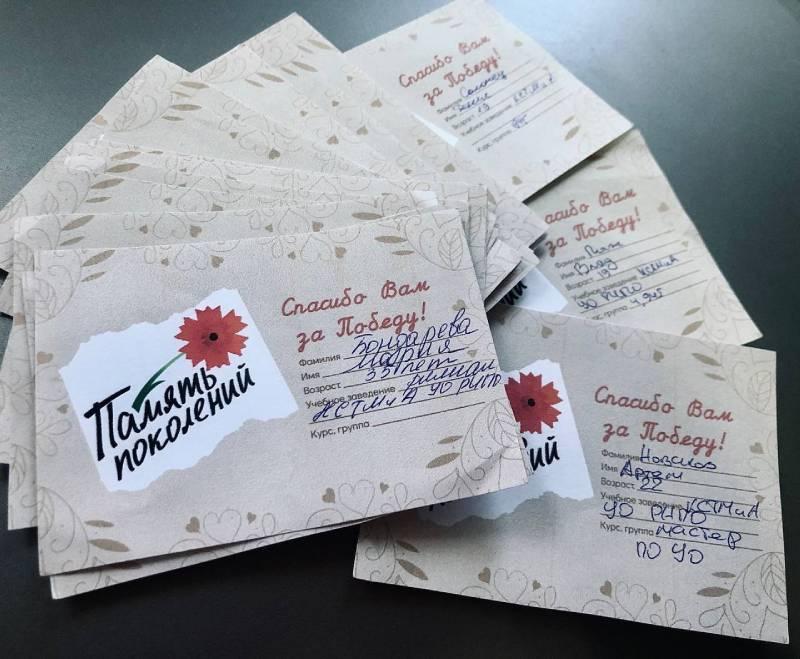 Спасибо Вам
за Победу!
Фамилия
Имя
Возраст 19
Учебное заведение КСТМиА
Курс, группа
Спасибо Вам
за Победу!
Фамилия
Имя Влад
Возраст 19
Учебное заведение КСТМиА
УО РИПО
Курс, группа
Память
поколений
Спасибо Вам
за Победу!
Фамилия Бондарева
Имя Мария
Возраст 33 лет
Учебное заведение филиал
КСТМиА УО РИПО
Курс, группа
Спасибо Вам
за Победу!
Фамилия Новиков
Имя Артем
Возраст 22
Учебное заведение КСТМиА
УО РИПО
Курс, группа мастер
по УО